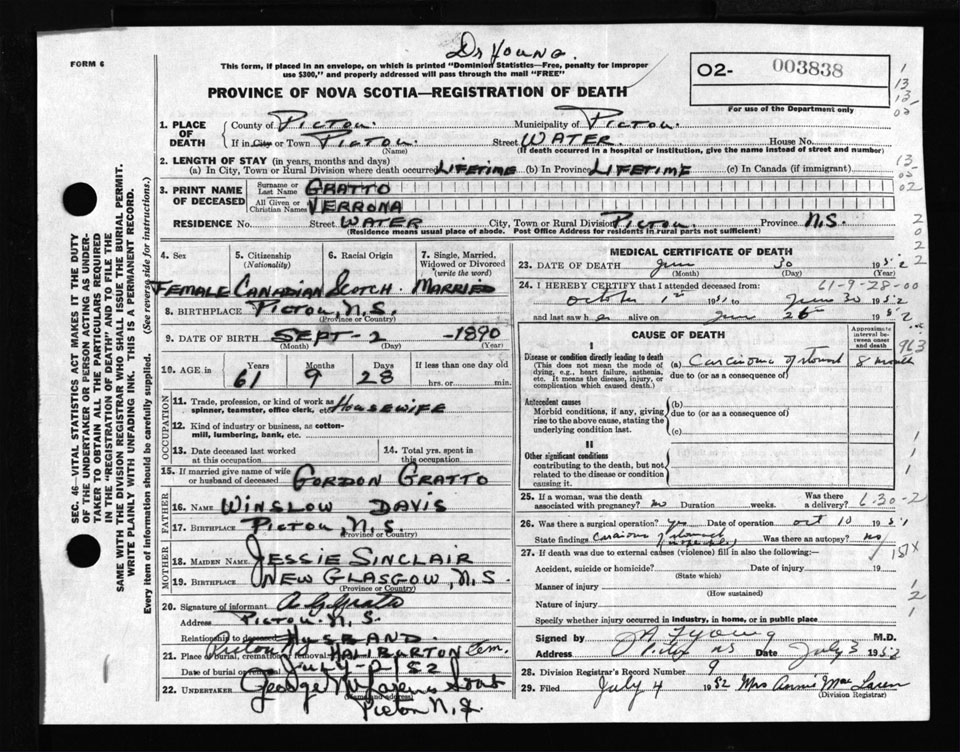 Dr Young.
FORM 6
This form, if placed in an envelope, on which is printed "Dominion Statistics—Free, penalty for improper
use $300," and properly addressed will pass through the mail "FREE"
O2- 003838
For use of the Department only
PROVINCE OF NOVA SCOTIA—REGISTRATION OF DEATH
1. PLACE OF DEATH
County of PICTOU. Municipality of PICTOU.
If in City or Town PICTOU. (Name) Street WATER House No.
(If death occurred in a hospital or institution, give the name instead of street and number)
2. LENGTH OF STAY (in years, months and days)
(a) In City, Town or Rural Division where death occurred LIFETIME (b) In Province LIFETIME (c) In Canada (if immigrant)
3. PRINT NAME OF DECEASED
Surname or Last Name GRATTO
All Given or Christian Names VERRONA
RESIDENCE No. Street WATER City, Town or Rural Division PICTOU Province N.S.
(Residence means usual place of abode. Post Office Address for residents in rural parts not sufficient)
4. Sex
FEMALE
5. Citizenship (Nationality)
CANADIAN
6. Racial Origin
SCOTCH
7. Single, Married, Widowed or Divorced (write the word)
MARRIED
8. BIRTHPLACE PICTOU, N.S.
(Province or Country)
9. DATE OF BIRTH SEPT - 2 - 1890
(Month) (Day) (Year)
10. AGE in Years Months Days If less than one day old
61 9 28 hrs. or min.
OCCUPATION
11. Trade, profession, or kind of work as spinner, teamster, office clerk, etc. HOUSEWIFE
12. Kind of industry or business, as cotton-mill, lumbering, bank, etc.
13. Date deceased last worked at this occupation
14. Total yrs. spent in this occupation
15. If married give name of wife or husband of deceased GORDON GRATTO
FATHER
16. Name WINSLOW DAVIS
17. Birthplace PICTOU, N.S.
(Province or Country)
MOTHER
18. MAIDEN NAME JESSIE SINCLAIR
19. BIRTHPLACE NEW GLASGOW, N.S.
(Province or Country)
20. Signature of informant
Address PICTOU. N.S.
Relationship to deceased HUSBAND.
21. Place of burial, cremation or removal HALIBURTON Cem.
Date of burial or removal JULY-2/52
22. UNDERTAKER George
(Name and address)
Pictou N.S.
MEDICAL CERTIFICATE OF DEATH
23. DATE OF DEATH June 30 1952
(Month) (Day) (Year)
24. I HEREBY CERTIFY that I attended deceased from: 61-9-28-00
October 1st 1951 to June 30 1952
and last saw h er alive on June 26th 1952
CAUSE OF DEATH
Approximate interval between onset and death
I
Disease or condition directly leading to death
(This does not mean the mode of dying, e.g., heart failure, asthenia, etc. It means the disease, injury, or complication which caused death.)
(a) Carcinoma of stomach 8 month
due to (or as a consequence of)
Antecedent causes
Morbid conditions, if any, giving rise to the above cause, stating the underlying condition last.
(b)
due to (or as a consequence of)
(c)
II
Other significant conditions
contributing to the death, but not related to the disease or condition causing it.
25. If a woman, was the death associated with pregnancy? no Duration weeks. Was there a delivery?
6-30-2
26. Was there surgical operation? yes Date of operation oct 10 1951
State findings Carcinoma of stomach inoperable Was there an autopsy? no
27. If death was due to external causes (violence) fill in also the following:—
151X
Accident, suicide or homicide? Date of injury 19
(State which)
Manner of injury
(How sustained)
Nature of injury
Specify whether injury occurred in industry, in home, or in public place
Signed by Young M.D.
Address Pictou NS Date July 3 1952
28. Division Registrar's Record Number 9
29. Filed July 4 1952 Mrs Annie Mac Laren
(Division Registrar)
SEC. 46—VITAL STATISTICS ACT MAKES IT THE DUTY
OF THE UNDERTAKER OR PERSON ACTING AS UNDER-
TAKER TO OBTAIN ALL THE PARTICULARS REQUIRED
IN THE "REGISTRATION OF DEATH" AND TO FILE THE
SAME WITH THE DIVISION REGISTRAR WHO SHALL ISSUE THE BURIAL PERMIT.
WRITE PLAINLY WITH UNFADING INK. THIS IS A PERMANENT RECORD.
Every item of information should be carefully supplied. (See reverse side for instructions.)